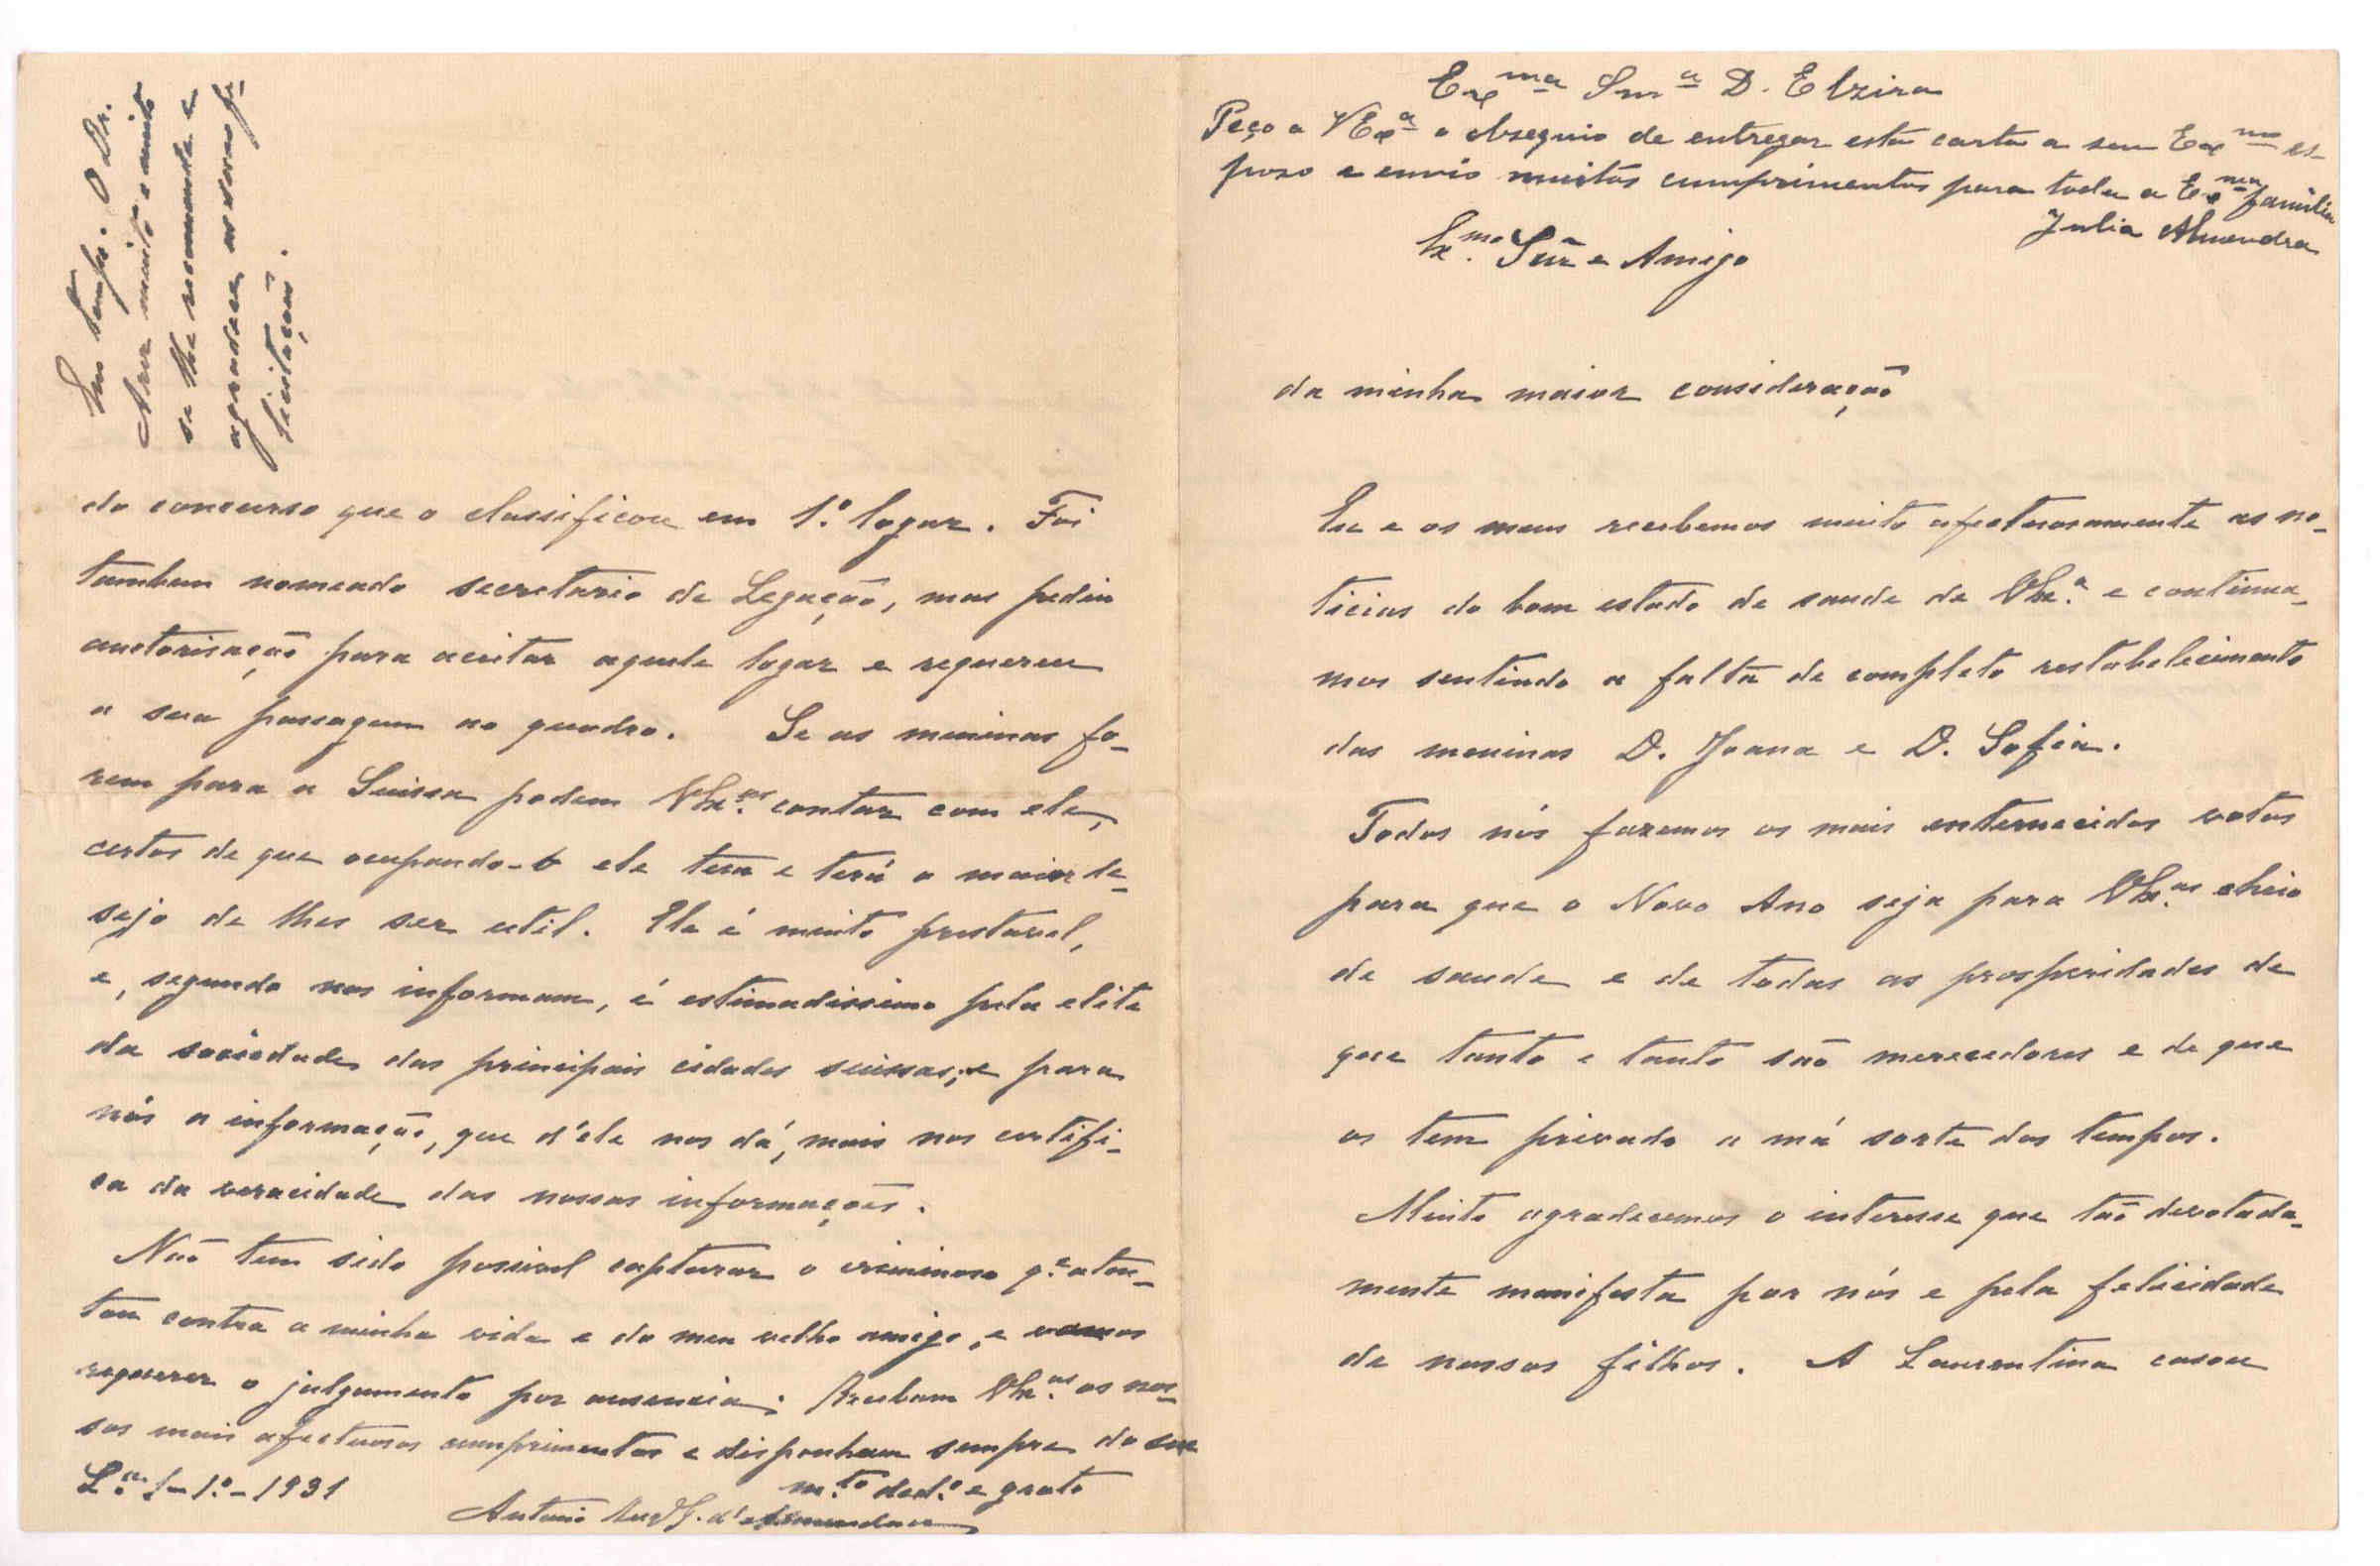 Ex.ma Snr.a D. Elzira
Peço a VEx.a o obsequio de entregar esta carta a seu Ex.mo es-
poso e envio muitos cumprimentos para toda a Ex.ma familia
Julia Almendra
Ex.mo Snr e Amigo
da minha maior consideração
Eu e os meus recebemos muito afectuosamente as no-
ticias do bom estado de saude de VEx.a e continua-
mos sentindo a falta de completo restabelecimento
das meninas D. Joana e D. Sofia.
Todos nós fazemos os mais enternecidos votos
para que o Novo Ano seja para VEx.as cheio
de saude e de todas as prosperidades de
que tanto e tanto são merecedores e de que
os tem privado a má sorte dos tempos.
Muito agradecemos o interesse que tão devotada-
mente manifesta por nós e pela felicidade
de nossos filhos. A Laurentina casou
do concurso que o classificou em 1.º logar. Foi
tambem nomeado secretario de Legação, mas pediu
auctorisação para aceitar aquele logar e requereu
a sua passagem ao quadro. Se as meninas fo-
rem para a Suissa podem VEx.as contar com ele,
certos de que ocupando-o ele tem e terá o maior de-
sejo de lhes ser util. Ele é muito prestavel,
e, segundo nos informam, é estimadissimo pela elite
da sociedade das principais cidades suissas; e para
nós a informação, que d'ele nos dá, mais nos certifi-
ca da veracidade das nossas informações.
Não tem sido possivel capturar o criminoso q.e aten-
tou contra a minha vida e do meu velho amigo, e vamos
requerer o julgamento por ausencia. Recebam VEx.as os nos-
sos mais afectuosos cumprimentos e disponham sempre do seu
m.to ded.o e grato
L.a 1-1.º-1931
Antonio d'Almendra
Em tempo. O Dr.
muito e muito
se lhe recomenda e
agradece as suas fe-
licitações.